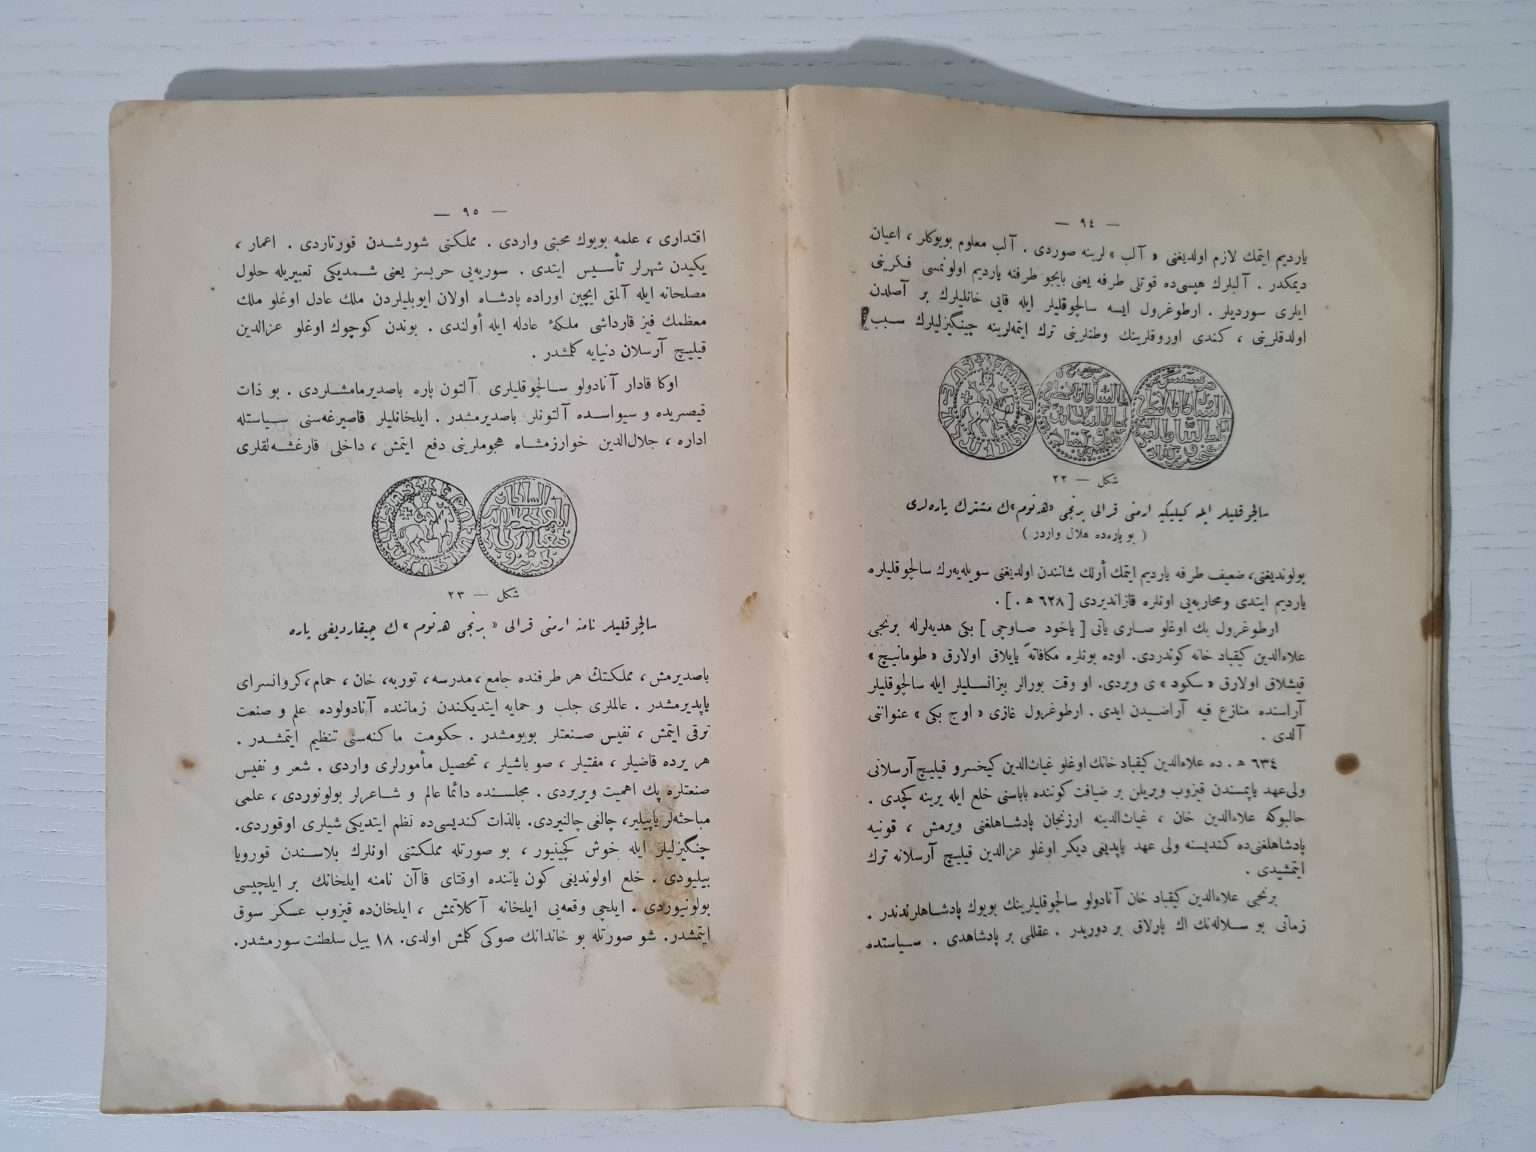 — ٩٤ —
یاردیم ایتمك لازم اولدیغنی « آلب » لرینه صوردی . آلب معلوم بویوكلر ، اعیان
دیمكدر . آلبلرك هپسی‌ده قوتلی طرفه یعنی بایجو طرفه یاردیم اولونمسی فكرینی
ایلری سوردیلر . ارطوغرول ایسه سالچوقلیلر ایله قایی خانلیلرك بر آصلدن
اولدقلرینی ، كندی اوروقلرینك وطنلرینی ترك ایتمه‌لرینه چینگیزلیلرك سبب
شكل — ٢٢
سالچوقلیلر ایله كیلیكیه ارمنی قرالی برنجی «هه‌تووم»ك مشترك پاره‌لری
( بو پاره‌ده هلال واردر )
بولوندیغنی، ضعیف طرفه یاردیم ایتمك أرلك شانندن اولدیغنی سویله‌یه‌رك سالچوقلیلره
یاردیم ایتدی ومحاربه‌یی اونلره قازاندیردی [ ٦٢٨ ه . ] .
ارطوغرول بك اوغلو صاری یاتی [ یاخود صاوجی ] بكی هدیه‌لرله برنجی
علاءالدین كیقباد خانه كوندردی. اوده بونلره مكافاةً یایلاق اولارق « طومانیچ »
قیشلاق اولارق « سكود » ی ویردی. او وقت بورالر بیزانسلیلر ایله سالچوقلیلر
آراسنده منازع فیه آراضیدن ایدی . ارطوغرول غازی « اوج بكی » عنواننی
آلدی .
٦٣٤ ه . ده علاءالدین كیقباد خانك اوغلو غیاث‌الدین كیخسرو قیلیچ آرسلانی
ولی‌عهد یاپمسندن قیزوب ویریلن بر ضیافت كوننده باباسنی خلع ایله یرینه كچدی .
حالبوكه علاءالدین خان ، غیاث‌الدینه ارزنجان پادشاهلغنی ویرمش ، قونیه
پادشاهلغنی‌ده كندیسنه ولی عهد یاپدیغی دیگر اوغلو عزالدین قیلیچ آرسلانه ترك
ایتمشیدی .
برنجی علاءالدین كیقباد خان آنادولو سالچوقلیلرینك بویوك پادشاهلرندندر .
زمانی بو سلاله‌نك اك پارلاق بر دوریدر . عقللی بر پادشاهدی . سیاستده
— ٩٥ —
اقتداری ، علمه بویوك محبتی واردی . مملكتنی شورشدن قورتاردی . اعمار ،
یكیدن شهرلر تأسیس ایتدی . سوریه‌یی حربسز یعنی شمدیكی تعبیریله حلول
مصلحانه ایله آلمق ایچین اوراده پادشاه اولان ایوبلیلردن ملك عادل اوغلو ملك
معظمك قیز قارداشی ملكۀ عادله ایله أولندی . بوندن كوچوك اوغلو عزالدین
قیلیچ آرسلان دنیایه كلمشدر .
اوكا قادار آنادولو سالچوقلیلری آلتون پاره باصدیرمامشلردی . بو ذات
قیصریده و سیواسده آلتونلر باصدیرمشدر . ایلخانلیلر قاصیرغه‌سنی سیاستله
اداره ، جلال‌الدین خوارزمشاه هجوملرینی دفع ایتمش ، داخلی قارغشه‌لقلری
شكل — ٢٣
سالچوقلیلر نامنه ارمنی قرالی « برنجی هه‌تووم » ك چیقاردیغی پاره
باصدیرمش ، مملكتك هر طرفنده جامع ، مدرسه ، توربه، خان ، حمام ،كروانسرای
یاپدیرمشدر . عالملری جلب و حمایه ایتدیكندن زماننده آنادولوده علم و صنعت
ترقی ایتمش ، نفیس صنعتلر بویومشدر . حكومت ماكنه‌سنی تنظیم ایتمشدر .
هر یرده قاضیلر ، مفتیلر ، صوباشیلر ، تحصیل مأمورلری واردی . شعر و نفیس
صنعتلره پك اهمیت ویریردی . مجلسنده دائما عالم و شاعرلر بولونوردی ، علمی
مباحثه‌لر یاپیلیر، چالغی چالنیردی. بالذات كندیسی‌ده نظم ایتدیكی شیلری اوقوردی.
چنگیزلیلر ایله خوش كچینیور ، بو صورتله مملكتنی اونلرك بلاسندن قورویا
بیلیودی . خلع اولوندیغی كون یاننده اوقتای قاآن نامنه ایلخانك بر ایلچیسی
بولونیوردی . ایلچی وقعه‌یی ایلخانه آكلاتمش ، ایلخان‌ده قیزوب عسكر سوق
ایتمشدر. شو صورتله بو خاندانك صوكی كلمش اولدی. ١٨ ییل سلطنت سورمشدر.